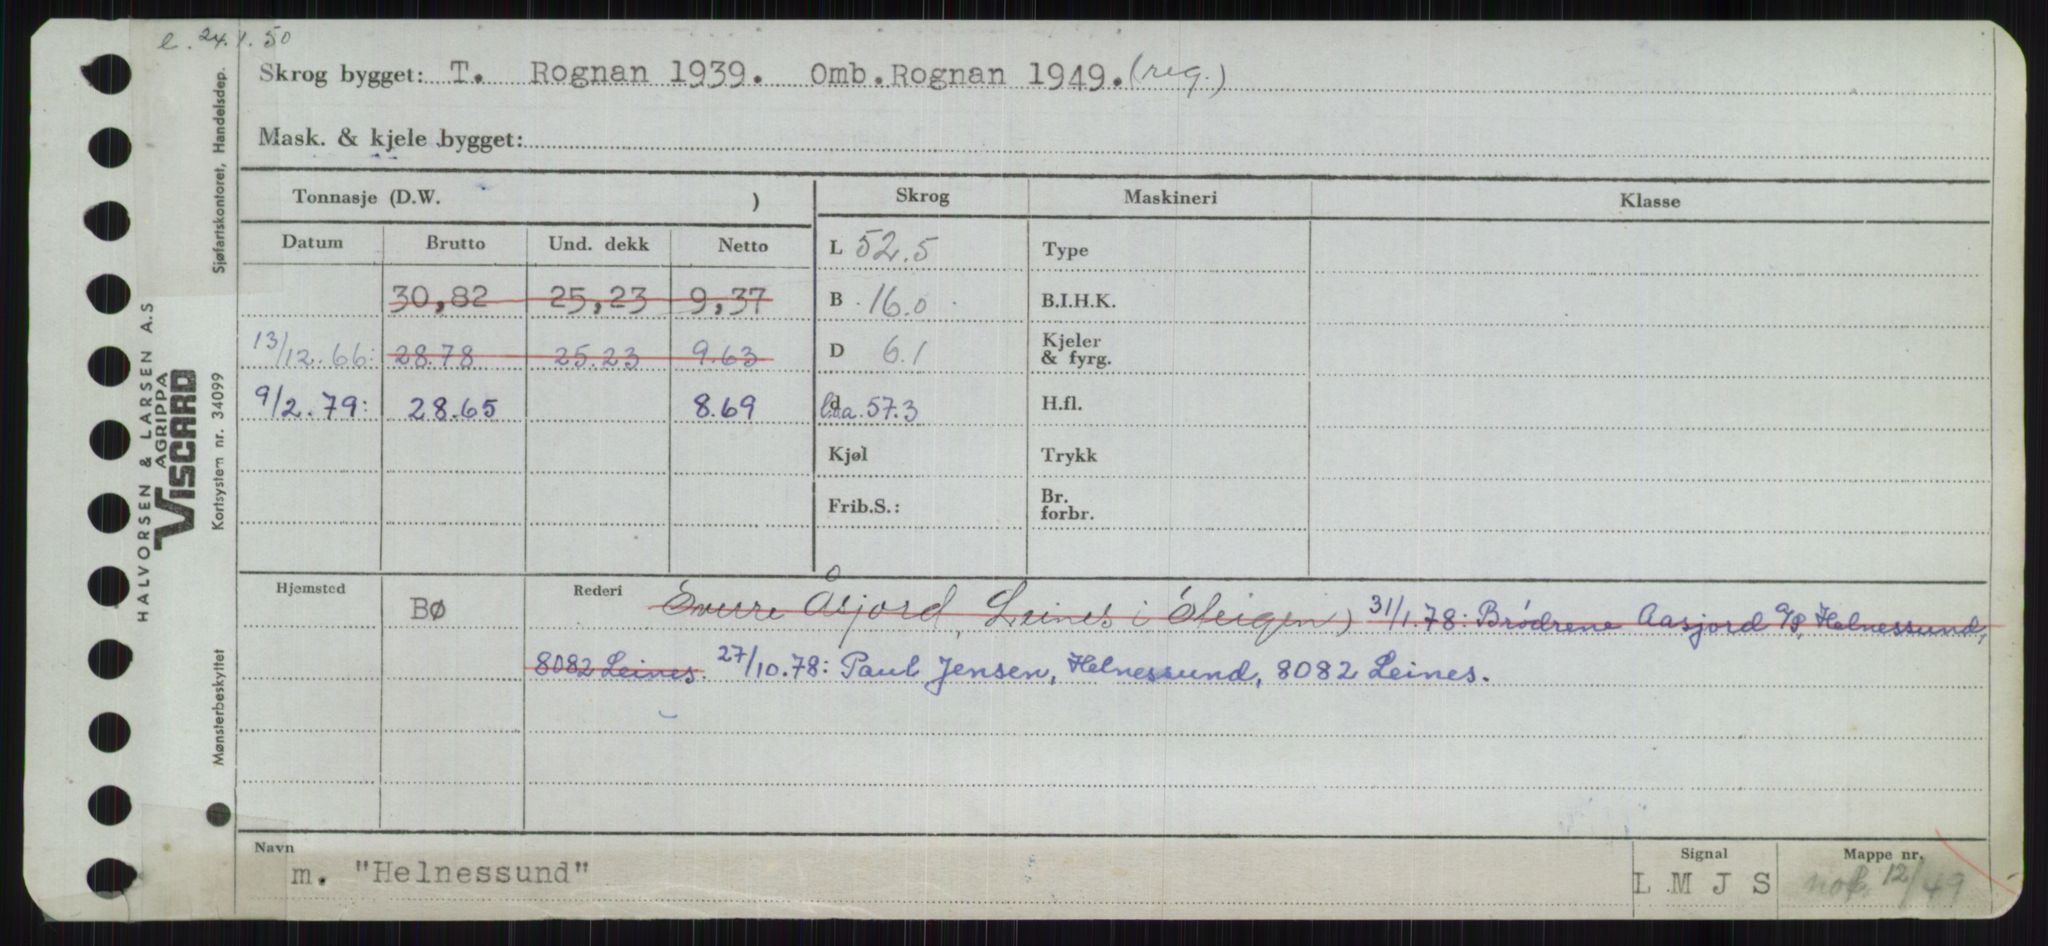 e. 24.1.50
Skrog bygget: T. Rognan 1939. Omb.Rognan 1949. (reg.)
Mask. & kjele bygget:
Tonnasje (D.W. ) Skrog Maskineri Klasse
Datum Brutto Und. dekk Netto L 52.5 Type
30,82 25,23 9,37 B 16.0 B.I.H.K.
13/12.66: 28.78 25.23 9.63 D 6.1 Kjeler & fyrg.
9/2.79: 28.65 8.69 d l.oa. 57.3 H.fl.
Kjøl Trykk
Frib.S.: Br. forbr.
Hjemsted BØ Rederi Sverre Åsjord, Leines i Steigen) 31/1.78: Brödrene Aasjord A/S, Helnessund,
8082 Leines. 27/10.78: Paul Jensen, Helnessund, 8082 Leines.
Navn Signal Mappe nr.
m. "Helnessund" L M J S 12/49
Sjøfartskontoret, Handelsdep.
HALVORSEN & LARSEN A.S
AGRIPPA
VISCARD
Kortsystem nr. 34099
Mønsterbeskyttet